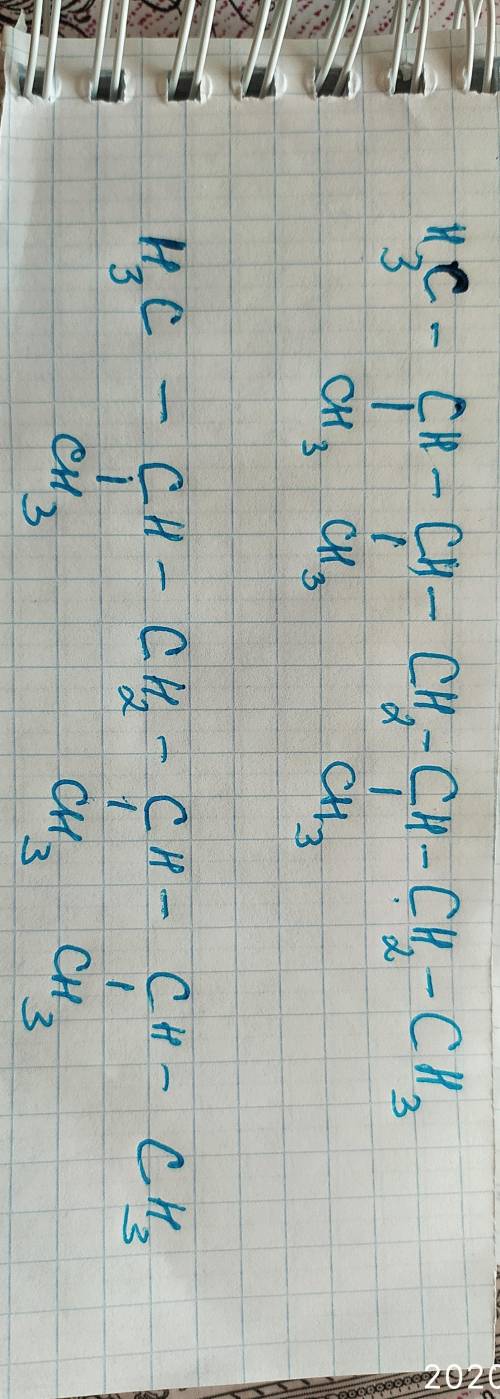 H₃C - CH - CH - CH₂ - CH - CH₂ - CH₃
CH₃ CH₃ CH₃
H₃C - CH - CH₂ - CH - CH - CH₃
CH₃ CH₃ CH₃
2020